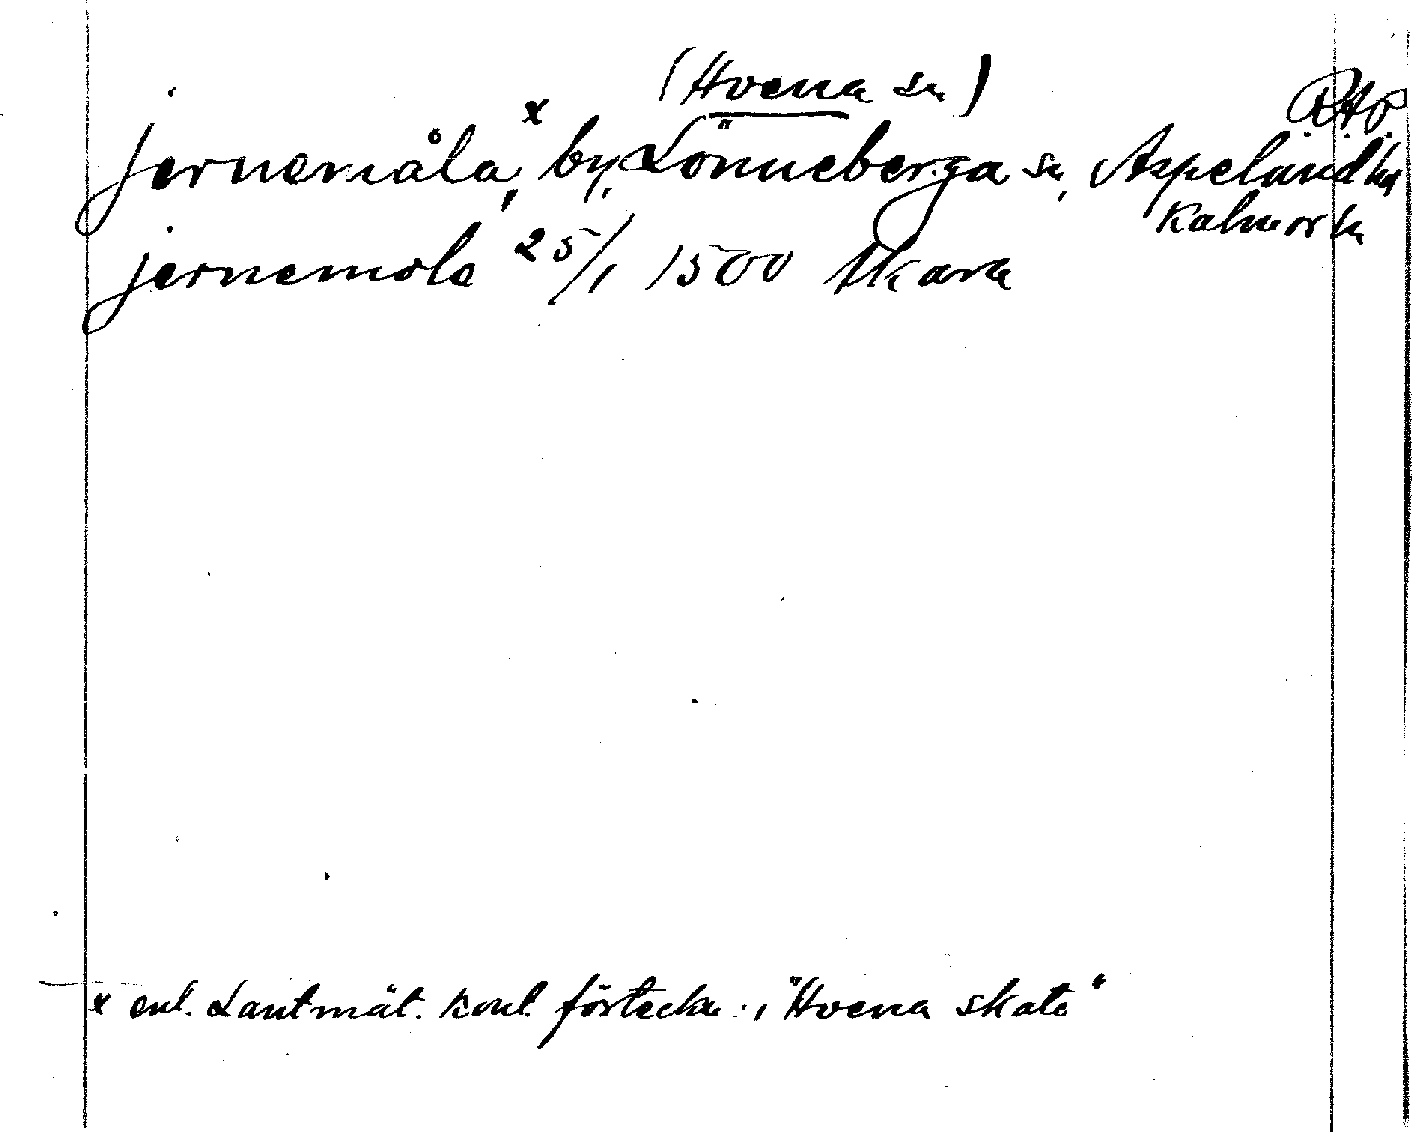 (Hvena sn)
RAp
jernemåla,ˣ by, Lönneberga sn, Aspeland hd
Kalmar ln
jernemola 25/1 1500 Skara
x enl. Lantmät. kont. förteckn. i "Hvena skate"